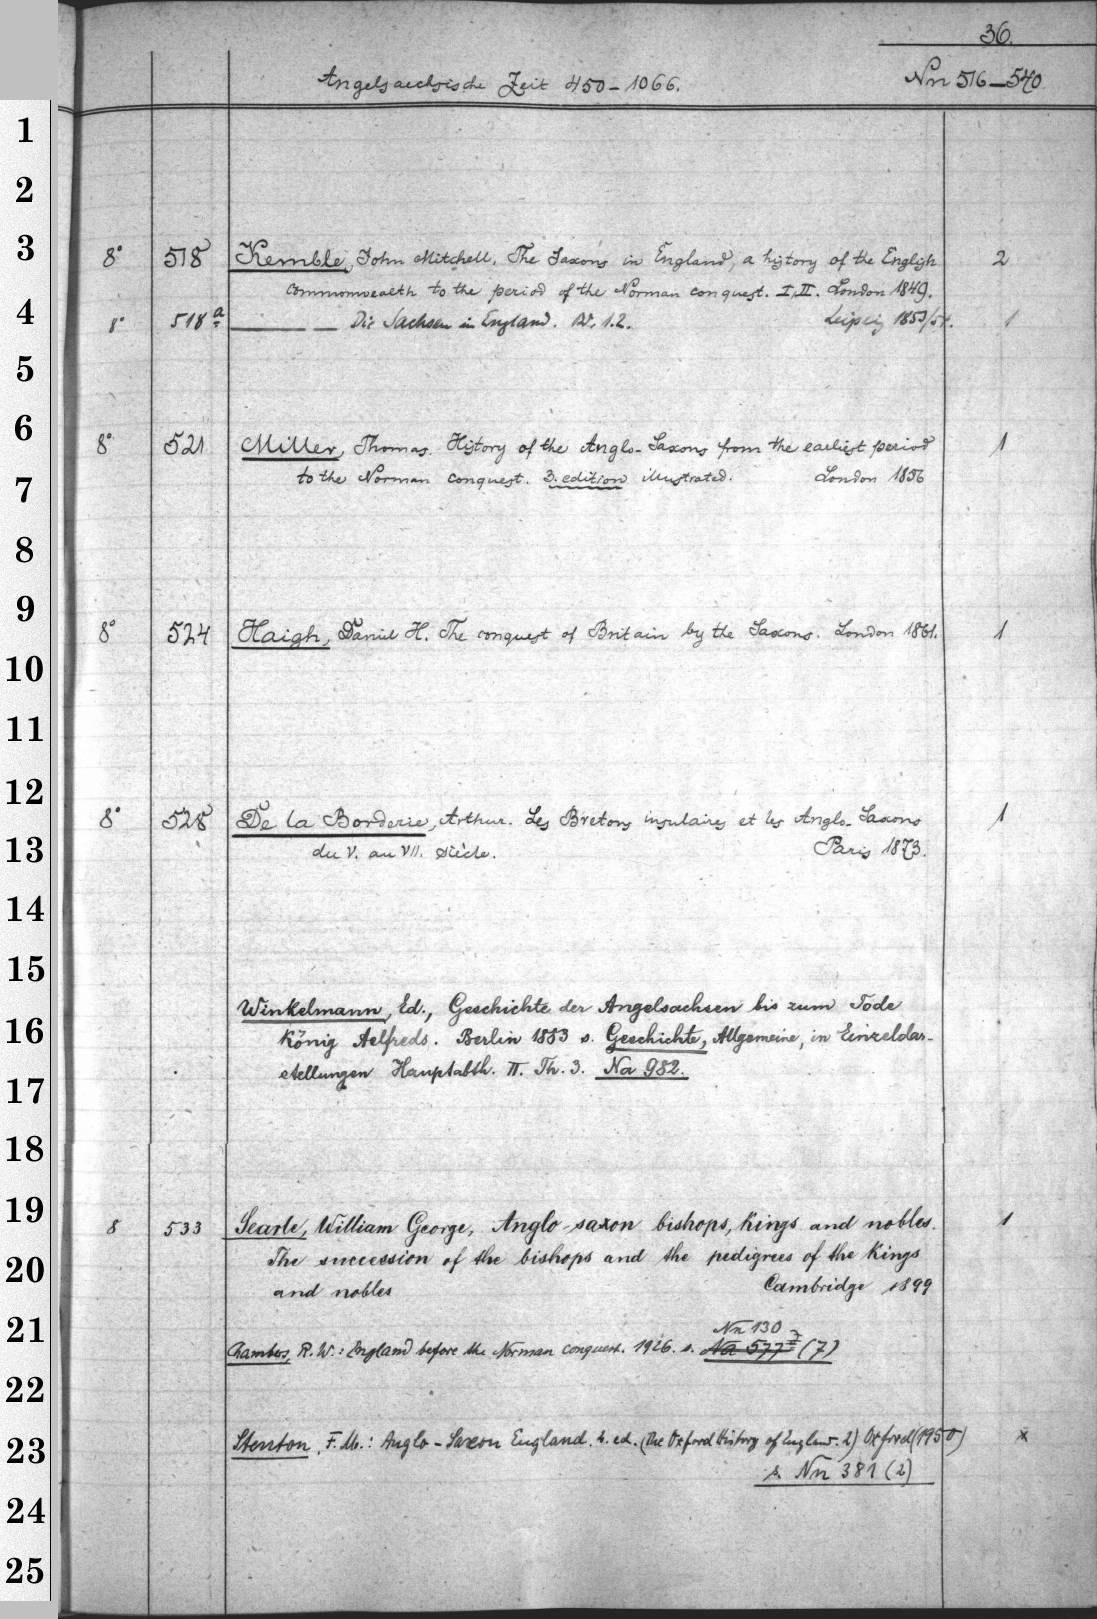 36.
Angelsaechsische Zeit 450-1066. Nn 516-540
1
2
3 8° 518 Kemble, John Mitchell. The Saxons in England, a history of the English 2
commonwealth to the period of the Norman conquest. I, II. London 1849.
4 8° 518a — — Die Sachsen in England. Bd. 1.2. Leipzig 1853/54. 1
5
6 8° 521 Miller, Thomas. History of the Anglo-Saxons from the earliest period 1
7 to the Norman conquest. 3. edition illustrated. London 1856
8
9 8° 524 Haigh, Daniel H. The conquest of Britain by the Saxons. London 1861. 1
10
11
12 8° 528 De la Borderie, Arthur. Les Bretons insulaires et les Anglo-Saxons 1
13 du V. au VII. siècle. Paris 1873.
14
15
Winkelmann, Ed., Geschichte der Angelsachsen bis zum Tode
16 König Aelfreds. Berlin 1883 s. Geschichte, Allgemeine, in Einzeldar-
17 stellungen Hauptabth. II. Th. 3. Na 982.
18
19 8 533 Searle, William George, Anglo-saxon bishops, Kings and nobles. 1
20 The succession of the bishops and the pedigrees of the Kings
and nobles Cambridge 1899
21 Nn 130
Chambers, R.W.: England before the Norman conquest. 1926. s. Na 577 (7)
22
23 Stenton, F.M.: Anglo-Saxon England. 4. ed. (The Oxford History of England. 2) Oxford (1950) x
s. Nn 381 (2)
24
25